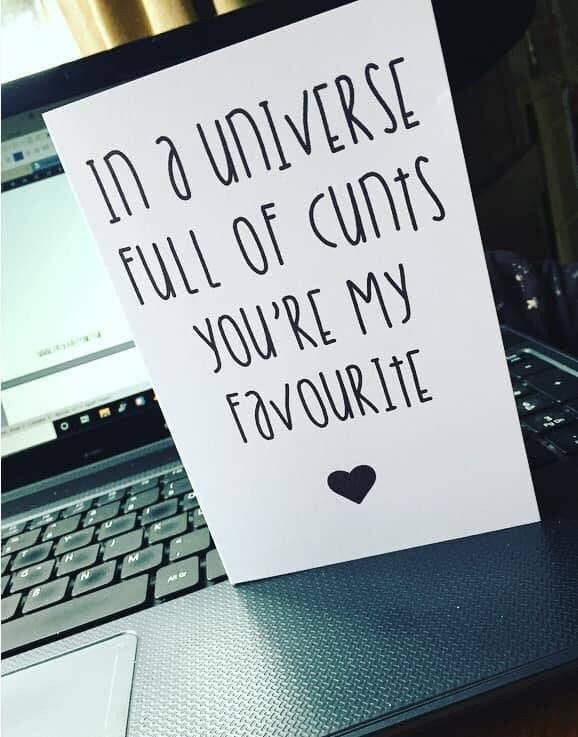 In a universe
full of cunts
you're my
favourite
Alt Gr